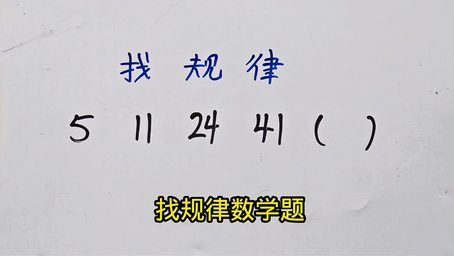 找规律
5 11 24 41 ( )
找规律数学题